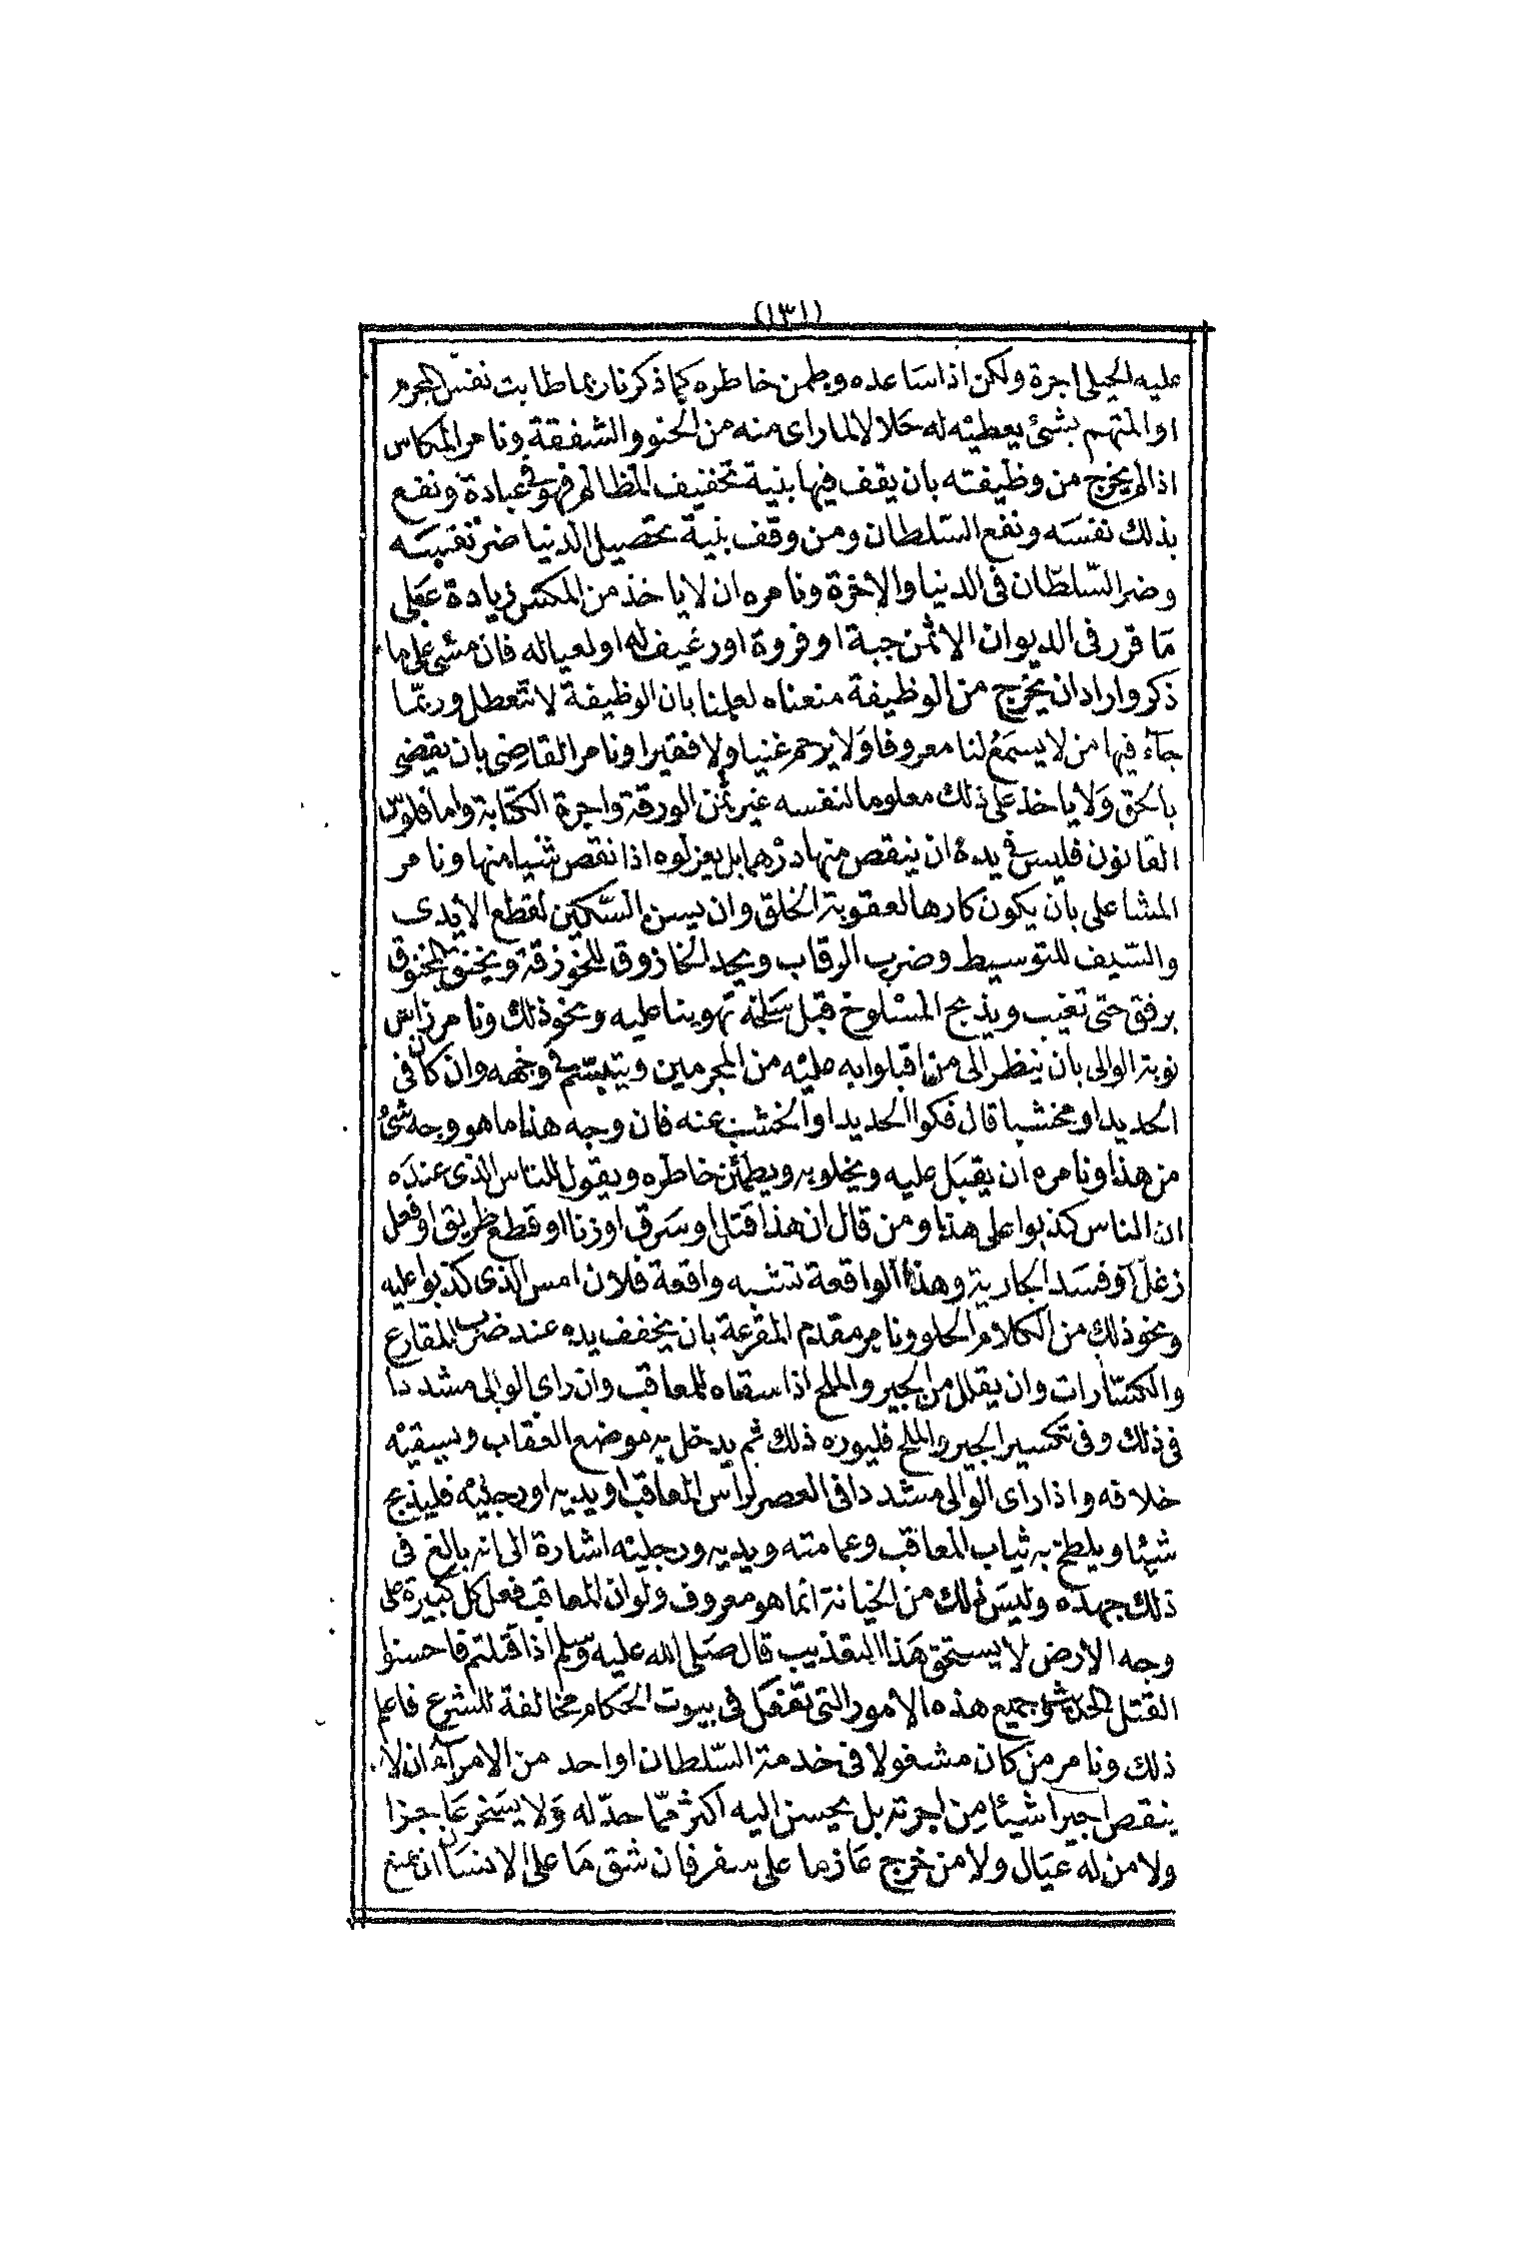 (١٣١)
عليه الحيلى اجرة ولكن اذا ساعده وطمن خاطره كما ذكرنا ربما طابت نفس المجرم
او المتهم بشئ يعطيه له حلالا لما راى منه من الحنو والشفقة ونامر المكاس
اذا لم يخرج من وظيفته بان يقف فيها بنية تخفيف المظالم فهو فى عبادة ونفع
بذلك نفسه ونفع السلطان ومن وقف بنية تحصيل الدنيا ضر نفسه
وضر السلطان فى الدنيا والاخرة ونامره ان لا ياخذ من المكس زيادة على
ما قرر فى الديوان الا ثمن جبة او فروة او رغيف له او لعياله فان مشى على ما
ذكر واراد ان يخرج من الوظيفة منعناه لعلمنا بان الوظيفة لا تتعطل وربما
جاء فيها من لا يسمع لنا معروفا ولا يرحم غنيا ولا فقيرا ونامر القاضى بان يقضى
بالحق ولا ياخذ على ذلك معلوما لنفسه غير ثمن الورقة واجرة الكتابة واما فلوس
القانون فليس فى يده ان ينقص منها درهما بل يعزلوه اذا نقص شيا منها ونامر
المشاعلى بان يكون كارها لعقوبة الخلق وان يسن السكين لقطع الايدى
والسيف للتوسيط وضرب الرقاب ويحد الخازوق للخوزقة ويخنق المخنوق
برفق حتى تغيب ويذبح المسلوخ قبل سلخه تهوينا عليه ونحو ذلك ونامر راس
نوبة الوالى بان ينظر الى من اقبلوا به عليه من المجرمين ويتبسم فى وجهه وان كان فى
الحديد او مخشبا قال فكوا الحديد او الخشب عنه فان وجه هذا ما هو وجه شئ
من هذا ونامره ان يقبل عليه ويخلو به ويطمئن خاطره ويقول للناس الذى عنده
ان الناس كذبوا على هذا ومن قال ان هذا قتل او سرق او زنا او قطع طريق او فعل
زغل او فسد الجارية وهذا الواقعة تشبه واقعة فلان امس الذى كذبوا عليه
ونحو ذلك من الكلام الحلو ونامر مقدم المقرعة بان يخفف يده عند ضرب المقارع
والكسارات وان يقلل من الجير والملح اذا سقاه للمعاقب وان راى الوالى مشددا
فى ذلك وفى تكسير الجير والملح فليوره ذلك ثم يدخل به موضع العقاب ويسقيه
خلافه واذا راى الوالى مشددا فى العصر لراس المعاقب او يديه او رجليه فليذبح
شيئا ويلطخ به ثياب المعاقب وعمامته ويديه ورجليه اشارة الى انه بالغ فى
ذلك جهده وليس ذلك من الخيانة انما هو معروف ولو ان المعاقب فعل كل كبيرة على
وجه الارض لا يستحق هذا التعذيب قال صلى الله عليه وسلم اذا قتلتم فاحسنوا
القتل الحديث وجميع هذه الامور التى تفعل فى بيوت الحكام مخالفة للشرع فاعلم
ذلك ونامر من كان مشغولا فى خدمة السلطان او احد من الامراء ان لا
ينقص اجيرا شيئا من اجرته بل يحسن اليه اكثر مما حد له ولا يسخر عاجزا
ولا من له عيال ولا من خرج عازما على سفر فان شق ما على الانسان ان